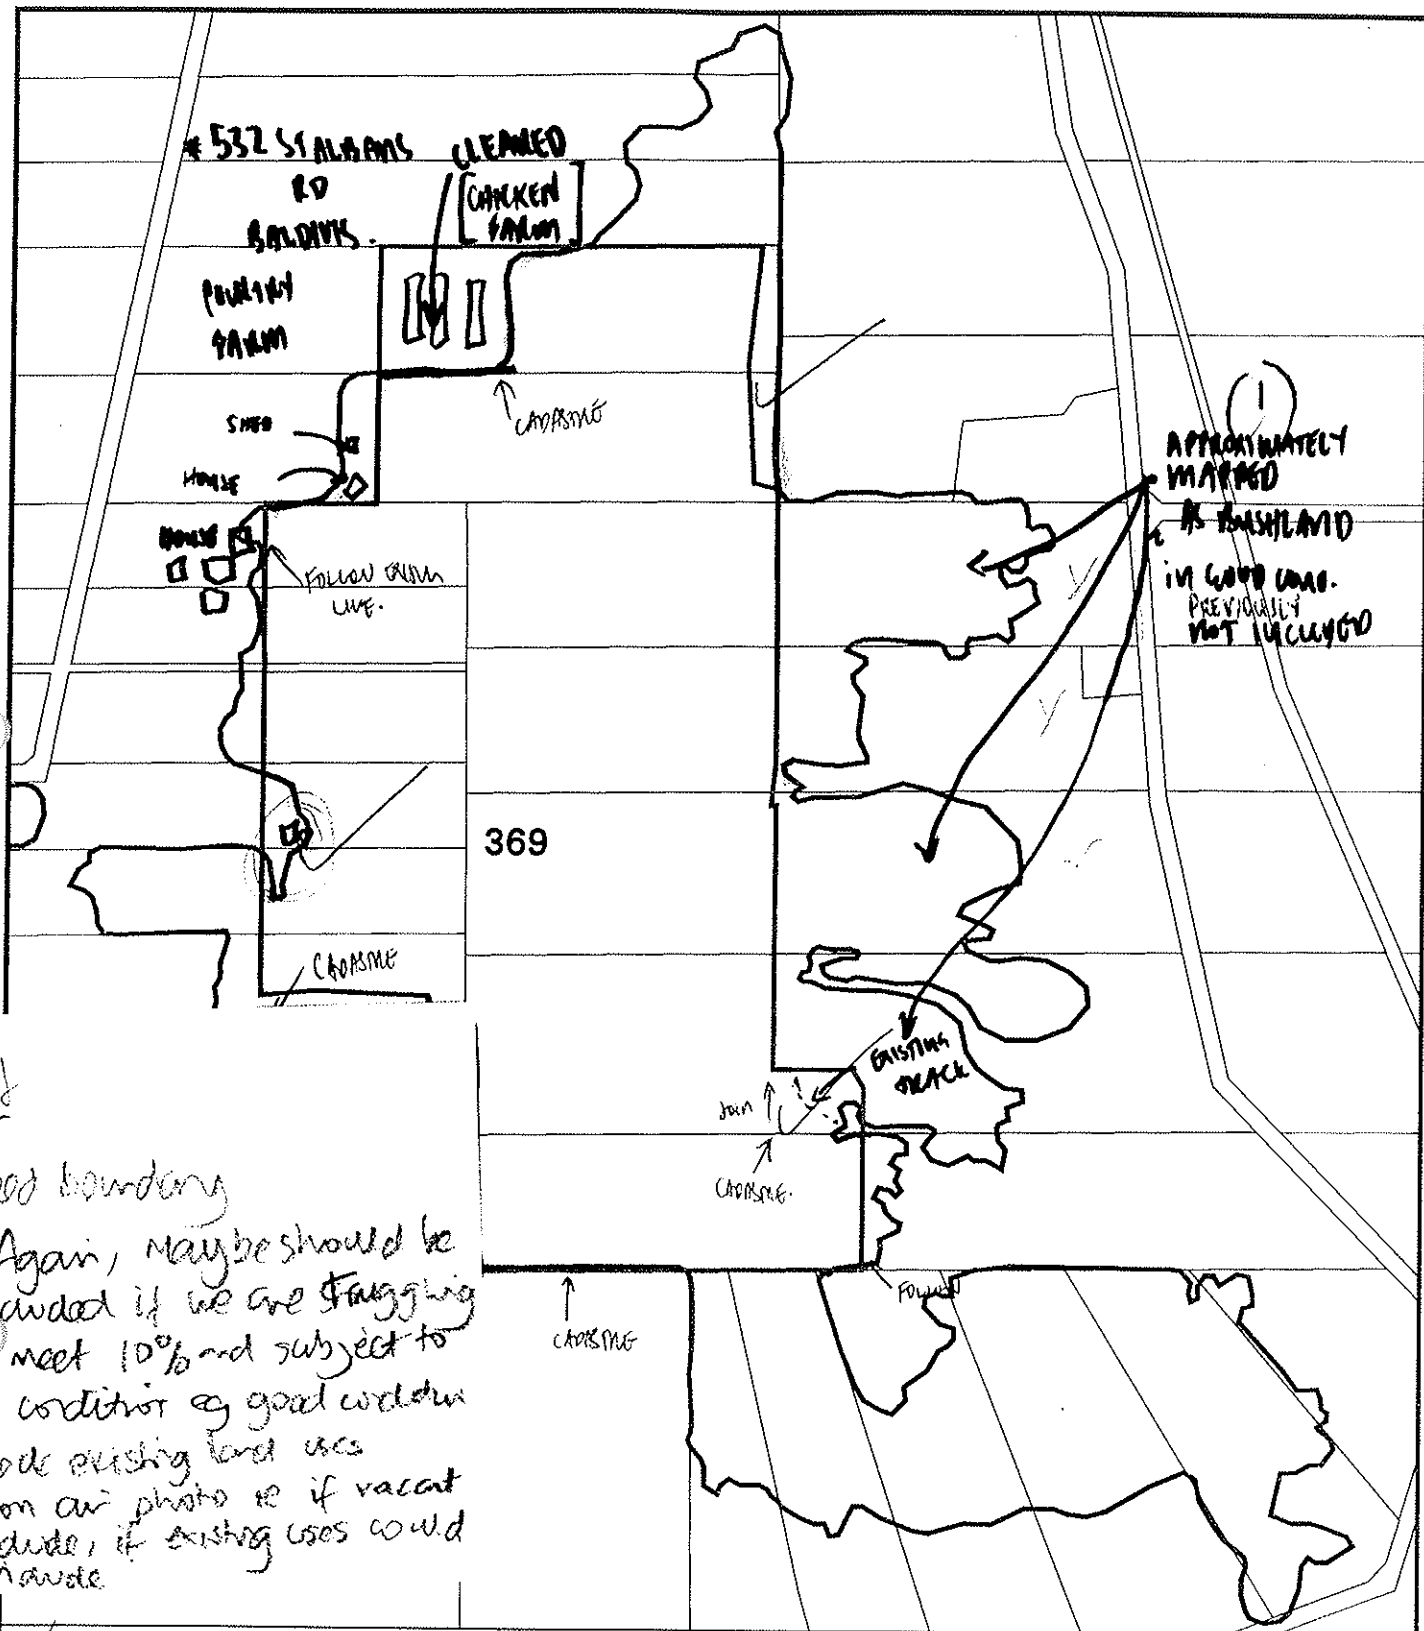 # 532 ST ALBANS
RD
BALDIVIS.
CLEARED
[CHICKEN
FARM]
POULTRY
FARM
SHED
HOUSE
HOUSE
CADASTRE
FOLLOW
LINE.
1
APPROXIMATELY
MAPPED
AS BUSHLAND
in GOOD COND.
PREVIOUSLY
NOT INCLUDED
369
CADASTRE
EXISTING
TRACK
JOIN
CADASTRE.
FOLLOW
CADASTRE
boundary
Again, Maybe should be
if we are struggling
meet 10% and subject to
condition eg good condition
existing land uses
on air photo ie if vacant
if existing uses could